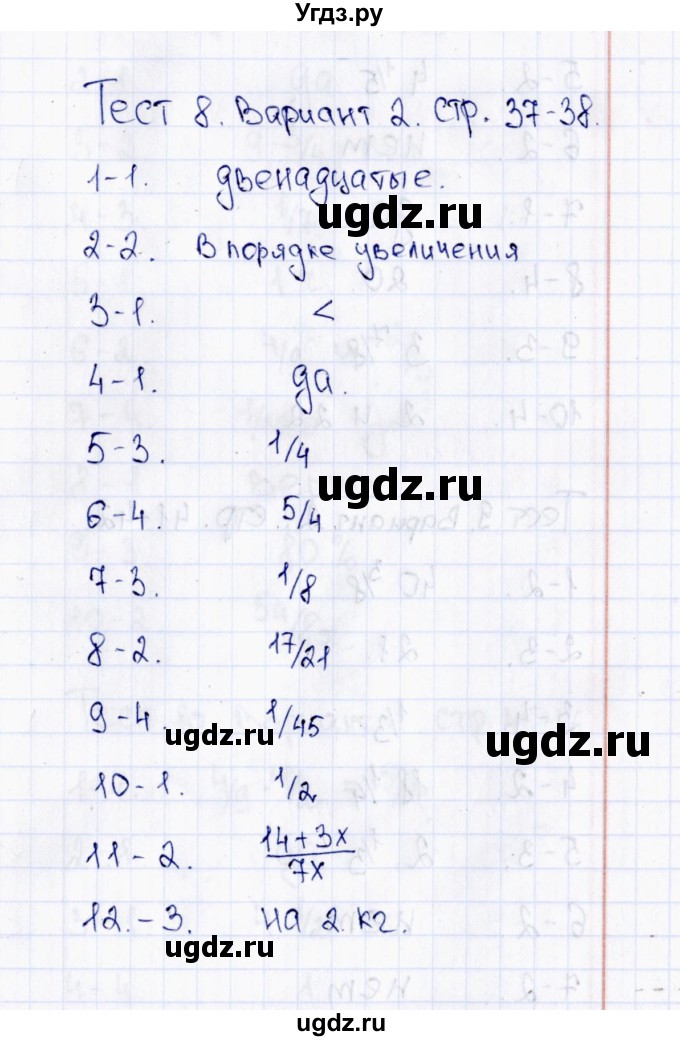 Угдз.ру
Тест 8. Вариант 2. Стр. 37-38.
1-1. двенадцатые.
ugdz.ru
2-2. В порядке увеличения
3-1. <
4-1. да.
5-3. 1/4
ugdz.ru
6-4. 5/4
7-3. 1/8
8-2. 17/21
9-4. 1/45
ugdz.ru
ugdz.ru
10-1. 1/2
11-2. (14+3x)/7x
12.-3. на 2 кг.
ugdz.ru